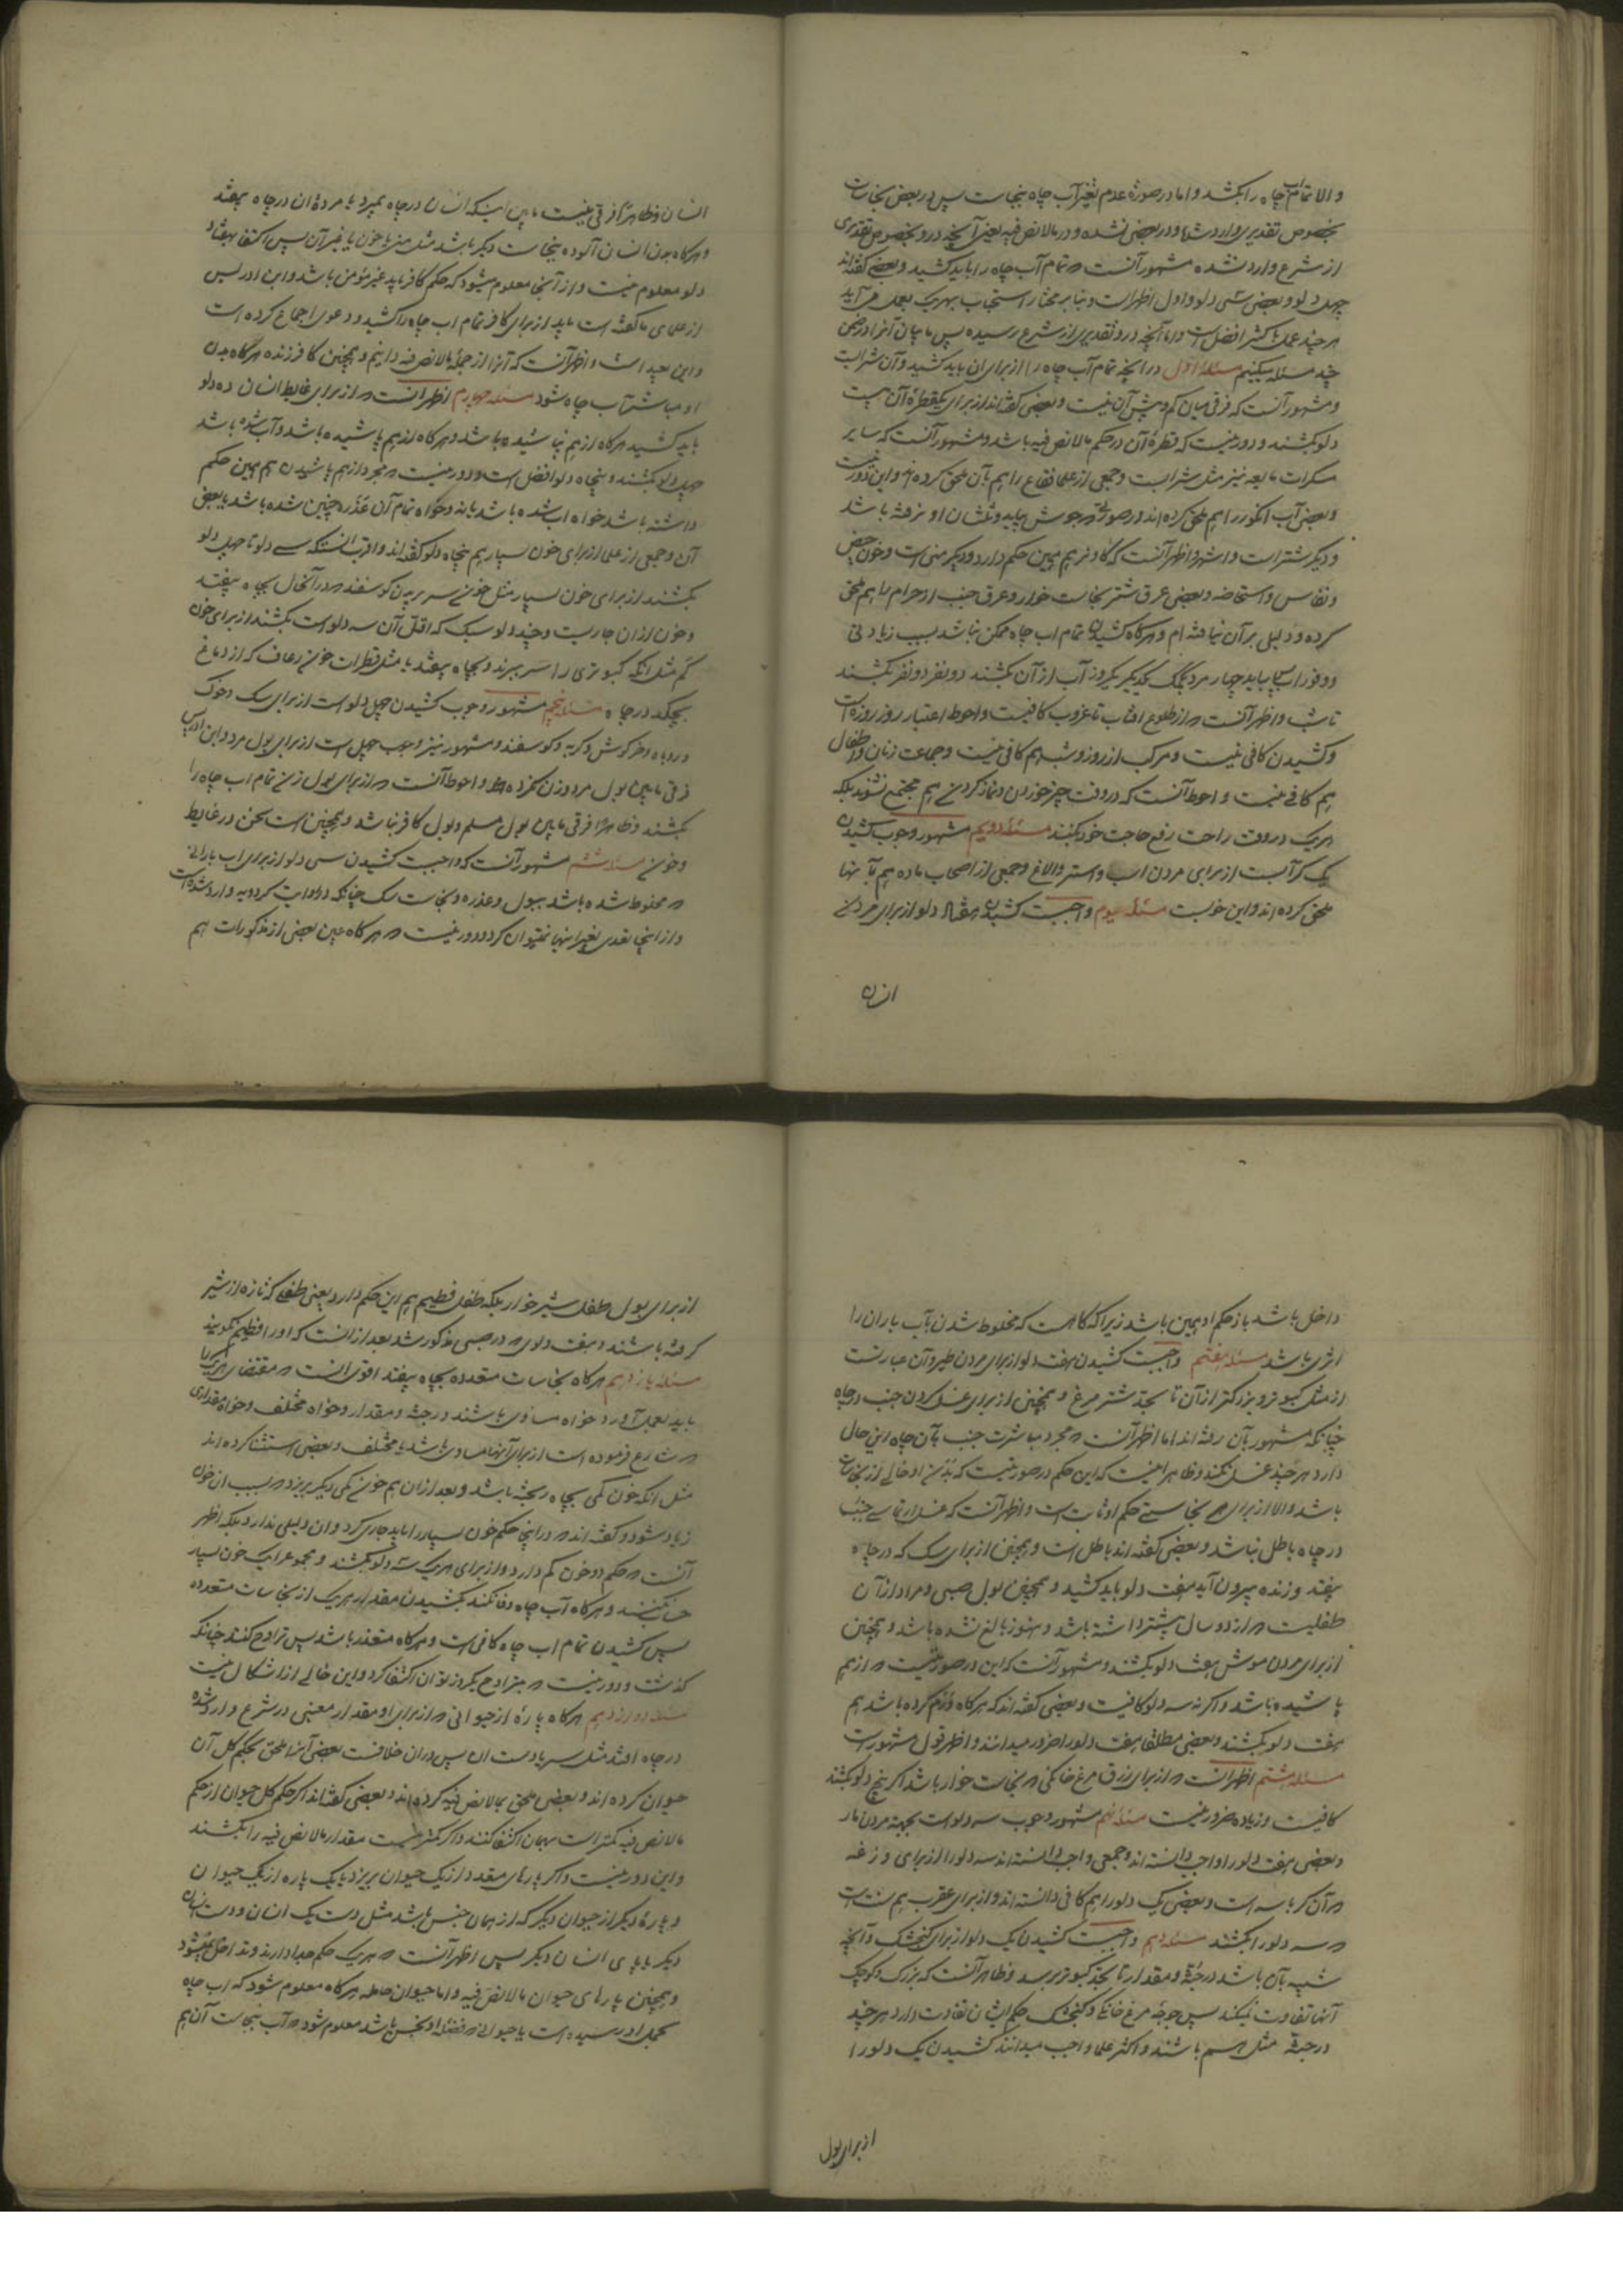 والا تمام آب چاه را بکشند و اما در صورة عدم تغیر آب چاه بنجاست پس در بعض نجاسات
بخصوص تقدیری وارد شده و در بعضی نشده و در مالانص فیه یعنی آنچه در و بخصوص تقدیری
از شرع وارد نشده مشهور آنست که تمام آب چاه را باید کشید و بعضی گفته‌اند
چهل دلو و بعضی سی دلو و اول اظهر است و بنا بر مختار استحباب بهریک بعمل می آید
هر چند عمل باکثر افضل است و اما آنچه در و تقدیری از شرع رسیده پس ما بیان آنرا در ضمن
چند مسئله میکنیم مسئله اول در آنچه تمام آب چاه را از برای ان باید کشید و آن شرابست
و مشهور آنست که فرقی میان کم و بیش آن نیست و بعضی گفته‌اند از برای یکقطره آن بیست
دلو بکشند و دور نیست که قطرهٔ آن در حکم مالانص فیه باشد و مشهور آنست که سایر
مسکرات مایعه نیز مثل شرابست و جمعی از علما فقاع را هم بآن ملحق کرده‌اند و این دور نیست
و بعضی آب انگور را هم ملحق کرده اند در صورتی که جوش بیاید و ثلثان او نرفته باشد
و دیگر شتر است و اشهر و اظهر آنست که گاو نر هم همین حکم دارد و دیگر منی است و خون حیض
و نفاس و استحاضه و بعضی عرق شتر نجاست خوار و عرق جنب از حرام را هم ملحق
کرده و دلیل بر آن نیافته ام و هرگاه کشیدن تمام اب چاه ممکن نباشد بسبب زیادتی
و وفور اب پس باید چهار مرد بکمک یکدیگر یکروز آب از آن بکشند دو نفر دو نفر بکشند
تا شب و اظهر آنست که از طلوع افتاب تا غروب کافیست و احوط اعتبار روز روزه است
و کشیدن کافی نیست و مرکب از روز و شب هم کافی نیست و جماعت زنان و اطفال
هم کافی نیست و احوط آنست که در وقت چیز خوردن و نماز کردن هم مجتمع نشوند بلکه
هریک در وقت راحت رفع حاجت خود بکنند مسئله دویم مشهور وجوب کشیدن
یک کر آبست از برای مردن اسب و استر و الاغ و جمعی از اصحاب ماده هم بآنها
ملحق کرده اند و این خوبست مسئله سیوم واجبست کشیدن هفتاد دلو از برای مردن
انسان
انسان و ظاهرا فرقی نیست مابین اینکه انسان در چاه بمیرد یا مردهٔ ان در چاه بیفتد
و هرگاه بدن انسان آلوده بنجاست دیگر باشد مثل منی یا خون یا غیر آن پس اکتفا بهفتاد
دلو معلوم نیست و از آنجا معلوم میشود که حکم کافر باید غیر مؤمن باشد و ابن ادریس
از علمای ما گفته است باید از برای کافر تمام اب چاه را کشید و دعوی اجماع کرده است
و این بعید است و اظهر آنست که آنرا از جملهٔ مالانص فیه دانیم و همچنین کافر زنده هرگاه بدن
او مباشر آب چاه شود مسئله چهارم اظهر انست که از برای غایط انسان ده دلو
باید کشید هرگاه از هم نپاشیده باشد و هرگاه از هم پاشیده باشد و آب شده باشد
چهل دلو بکشند و پنجاه دلو افضل است و دور نیست که مجرد از هم پاشیدن هم همین حکم
داشته باشد خواه اب شده باشد یا نه و خواه تمام آن عذره چنین شده باشد یا بعض
آن و جمعی از علما از برای خون بسیار هم پنجاه دلو گفته‌اند و اقرب انست که سی دلو تا چهل دلو
بکشند از برای خون بسیار مثل خون سر بریدن گوسفند که در آنحال بچاه بیفتد
و خون از ان جاریست و چند دلو سبک که اقل آن سه دلو است بکشند از برای خون
کم مثل انکه کبوتری را سر ببرند و بچاه بیفتد یا مثل قطرات خون رعاف که از دماغ
بچکد در چاه مسئله پنجم مشهور وجوب کشیدن چهل دلو است از برای سک و خوک
و روباه و خرگوش و گربه و گوسفند و مشهور نیز وجوب چهل است از برای بول مرد و ابن ادریس
فرقی مابین بول مرد و زن نکرده و احوط آنست که از برای بول زن تمام اب چاه را
بکشند و ظاهرا فرقی مابین بول مسلم و بول کافر نباشد و همچنین است سخن در غایط
و خون مسئله ششم مشهور آنست که واجبست کشیدن سی دلو از برای اب باران
که مخلوط شده باشد ببول و عذره و نجاست سک چنانکه در روایت کردویه وارد شده است
و از اینجا تعدی بغیر اینها نمیتوان کرد و دور نیست که هرگاه عین بعضی از مذکورات هم
داخل باشد باز حکم او همین باشد زیرا که گاه است که مخلوط شدن بآب باران را
اثری باشد مسئله هفتم واجبست کشیدن هفت دلو از برای مردن طیر و آن عبارتست
از مثل کبوتر و بزرگتر از آن تا بجثهٔ شتر مرغ و همچنین از برای غسل کردن جنب در چاه
چنانکه مشهور بآن رفته اند اما اظهر آنست که مجرد مباشرت جنب بآن چاه این حال
دارد هر چند غسل نکند و ظاهرا نیست که این حکم در صورتیست که بدن او خالی از نجاست
باشد و الا از برای هر نجاستی حکم او ثابت است و اظهر آنست که غسل ارتماسی جنب
در چاه باطل نباشد و بعضی گفته اند باطل است و همچنین از برای سک که در چاه
بیفتد و زنده بیرون آید هفت دلو باید کشید و همچنین بول صبی و مراد از آن
طفلیست که از دو سال بیشتر داشته باشد و هنوز بالغ نشده باشد و همچنین
از برای مردن موش هفت دلو بکشند و مشهور آنست که این در صورتیست که از هم
پاشیده باشد و اگر نه سه دلو کافیست و بعضی گفته اند که هرگاه ورم کرده باشد هم
هفت دلو بکشند و بعضی مطلقا هفت دلو را ضرور میدانند و اظهر قول مشهور است
مسئله هشتم اظهر انست که از برای زرق مرغ خانگی که نجاست خوار باشد اگر پنج دلو بکشند
کافیست و زیاده ضرور نیست مسئله نهم مشهور وجوب سه دلو است بجهة مردن مار
و بعضی هفت دلو را واجب دانسته اند و جمعی واجب دانسته اند سه دلو را از برای وزغه
که آن کرباسه است و بعضی یک دلو را هم کافی دانسته اند و از برای عقرب هم سنت است
که سه دلو را بکشند مسئله دهم واجبست کشیدن یک دلو از برای کنجشک و آنچه
شبیه بآن باشد در جثه و مقدار تا بحد کبوتر برسد و ظاهر آنست که بزرگ و کوچک
آنها تفاوت نمیکند پس جوجهٔ مرغ خانگی و کنجشک حکم ایشان تفاوت دارد هر چند
در جثه مثل هم باشند و اکثر علما واجب میدانند کشیدن یک دلو را
از برای بول
از برای بول طفل شیر خوار بلکه طفل فطیم هم این حکم دارد یعنی طفلی که تازه از شیر
گرفته باشند و هفت دلوی که در صبی مذکور شد بعد از انست که او را فطیم نگویند
مسئله یازدهم هرگاه نجاسات متعدده بچاه بیفتد اقوی انست که مقتضای هریک را
باید بعمل آورد خواه مساوی باشند در جثه و مقدار و خواه مختلف و خواه مقداری
که شارع فرموده است از برای آنها مساوی باشد یا مختلف و بعضی استثنا کرده اند
مثل انکه خون کمی بچاه ریخته باشد و بعد از ان هم خون کمی دیگر بریزد که بسبب ان خون
زیاد شود و گفته اند که در اینجا حکم خون بسیار را باید جاری کرد و ان دلیلی ندارد بلکه اظهر
آنست که حکم دو خون کم دارد و از برای هریک سه دلو بکشند و مجموع را یک خون بسیار
حساب نکنند و هرگاه آب چاه وفا نکند بکشیدن مقدار هریک از نجاسات متعدده
پس کشیدن تمام اب چاه کافی است و هرگاه متعذر باشد پس تراوح کنند چنانکه
گذشت و دور نیست که بتراوح یکروز توان اکتفا کرد و این خالی از اشکال نیست
مسئله دوازدهم هرگاه پارهٔ از حیوانی که از برای او مقدار معینی در شرع وارد شده
در چاه افتد مثل سر یا دست ان پس در ان خلافست بعضی آنرا ملحق بحکم کل آن
حیوان کرده اند و بعضی ملحق بمالانص فیه کرده اند و بعضی گفته اند اگر حکم کل حیوان از حکم
مالانص فیه کمتر است بهمان اکتفا کنند و اگر کمتر نیست مقدار مالانص فیه را بکشند
و این دور نیست و اگر پارهای متعدد از یک حیوان بریزد یا یک پاره از یک حیوان
و پارهٔ دیگر از حیوان دیگر که از همان جنس باشد مثل دست یک انسان و دست انسان
دیگر یا پای انسان دیگر پس اظهر آنست که هریک حکم جدا دارند و تداخل نمیشود
و همچنین پارهای حیوان مالانص فیه و اما حیوان حامله هرگاه معلوم شود که اب چاه
بحمل او رسیده است یا حیوانی که فضله او نجس باشد معلوم شود که آب بنجاست آن هم